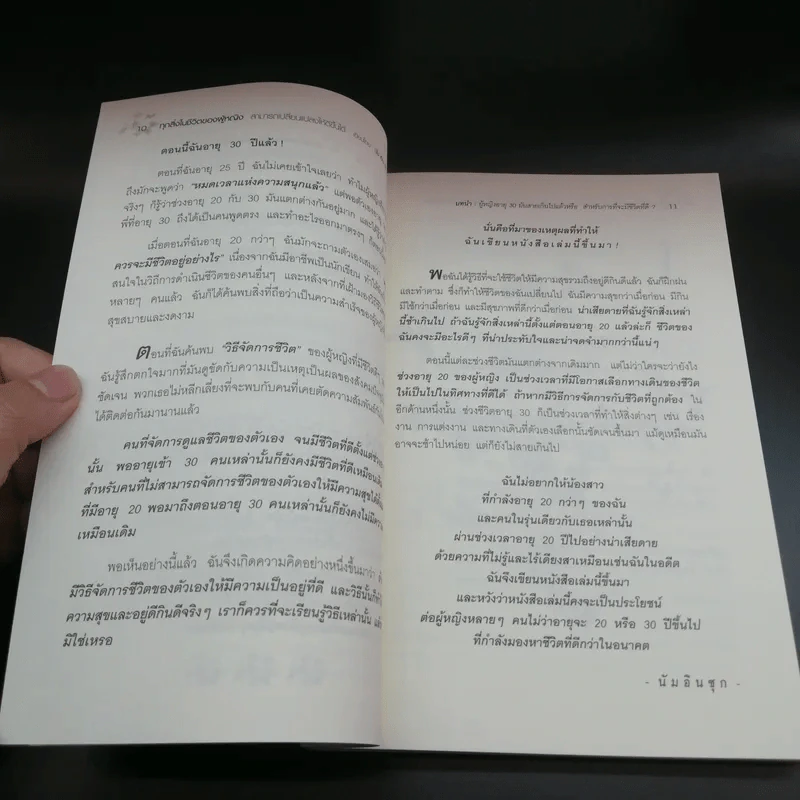 10 ทุกสิ่งในชีวิตของผู้หญิง สามารถเปลี่ยนแปลงให้ดีขึ้นได้
ตอนนี้ฉันอายุ 30 ปีแล้ว !
ตอนที่ฉันอายุ 25 ปี ฉันไม่เคยเข้าใจเลยว่า ทำไมผู้หญิง
ถึงมักจะพูดว่า “หมดเวลาแห่งความสนุกแล้ว” แต่พอตัวเองอายุ
จริงๆ ก็รู้ว่าช่วงอายุ 20 กับ 30 มันแตกต่างกันอยู่มาก และได้รู้
พี่ที่อายุ 30 ถึงได้เป็นคนพูดตรง และทำอะไรออกมาตรงๆ
เมื่อตอนที่ฉันอายุ 20 กว่าๆ ฉันมักจะถามตัวเองเสมอว่า
ควรจะมีชีวิตอยู่อย่างไร” เนื่องจากฉันมีอาชีพเป็นนักเขียน ทำให้
สนใจในวิถีการดำเนินชีวิตของคนอื่นๆ และหลังจากที่เฝ้ามองชีวิต
หลายๆ คนแล้ว ฉันก็ได้ค้นพบสิ่งที่ถือว่าเป็นความสำเร็จของ
สุขสบายและงดงาม
ตอนที่ฉันค้นพบ “วิธีจัดการชีวิต” ของผู้หญิงที่มีชีวิต
ฉันรู้สึกตกใจมากที่มันดูขัดกับความเป็นเหตุเป็นผลของสังคม
ชัดเจน พวกเธอไม่หลีกเลี่ยงที่จะพบกับคนที่เคยตัดความสัมพันธ์
ได้ติดต่อกันมานานแล้ว
คนที่จัดการดูแลชีวิตของตัวเอง จนมีชีวิตที่ดีตั้งแต่
นั้น พออายุเข้า 30 คนเหล่านั้นก็ยังคงมีชีวิตที่ดีเหมือนเดิม
สำหรับคนที่ไม่สามารถจัดการชีวิตของตัวเองให้มีความสุขได้
ที่มีอายุ 20 พอมาถึงตอนอายุ 30 คนเหล่านั้นก็ยังคงไม่มีความ
เหมือนเดิม
พอเห็นอย่างนี้แล้ว ฉันจึงเกิดความคิดอย่างหนึ่งขึ้นมาว่า
มีวิธีจัดการชีวิตของตัวเองให้มีความเป็นอยู่ที่ดี และวิธีนั้นก็
ความสุขและอยู่ดีกินดีจริงๆ เราก็ควรที่จะเรียนรู้วิธีเหล่านั้น
มิใช่เหรอ
บทนำ : ผู้หญิงอายุ 30 มันสายเกินไปแล้วหรือ สำหรับการที่จะมีชีวิตที่ดี ? 11
นั่นคือที่มาของเหตุผลที่ทำให้
ฉันเขียนหนังสือเล่มนี้ขึ้นมา !
พอฉันได้รู้วิธีที่จะใช้ชีวิตให้มีความสุขรวมถึงอยู่ดีกินดีแล้ว ฉันก็ฝึกฝน
และทำตาม ซึ่งก็ทำให้ชีวิตของฉันเปลี่ยนไป ฉันมีความสุขกว่าเมื่อก่อน มีกิน
มีใช้กว่าเมื่อก่อน และมีสุขภาพที่ดีกว่าเมื่อก่อน น่าเสียดายที่ฉันรู้จักสิ่งเหล่า
นี้ช้าเกินไป ถ้าฉันรู้จักสิ่งเหล่านี้ตั้งแต่ตอนอายุ 20 แล้วล่ะก็ ชีวิตของ
ฉันคงจะมีอะไรดีๆ ที่น่าประทับใจและน่าจดจำมากกว่านี้แน่ๆ
ตอนนี้แต่ละช่วงชีวิตมันแตกต่างจากเดิมมาก แต่ไม่ว่าใครจะว่ายังไง
ช่วงอายุ 20 ของผู้หญิง เป็นช่วงเวลาที่มีโอกาสเลือกทางเดินของชีวิต
ให้เป็นไปในทิศทางที่ดีได้ ถ้าหากมีวิธีการจัดการกับชีวิตที่ถูกต้อง ใน
อีกด้านหนึ่งนั้น ช่วงชีวิตอายุ 30 ก็เป็นช่วงเวลาที่ทำให้สิ่งต่างๆ เช่น เรื่อง
งาน การแต่งงาน และทางเดินที่ตัวเองเลือกนั้นชัดเจนขึ้นมา แม้ดูเหมือนมัน
อาจจะช้าไปหน่อย แต่ก็ยังไม่สายเกินไป
ฉันไม่อยากให้น้องสาว
ที่กำลังอายุ 20 กว่าๆ ของฉัน
และคนในรุ่นเดียวกับเธอเหล่านั้น
ผ่านช่วงเวลาอายุ 20 ปีไปอย่างน่าเสียดาย
ด้วยความที่ไม่รู้และไร้เดียงสาเหมือนเช่นฉันในอดีต
ฉันจึงเขียนหนังสือเล่มนี้ขึ้นมา
และหวังว่าหนังสือเล่มนี้คงจะเป็นประโยชน์
ต่อผู้หญิงหลายๆ คนไม่ว่าอายุจะ 20 หรือ 30 ปีขึ้นไป
ที่กำลังมองหาชีวิตที่ดีกว่าในอนาคต
- นัมอินซุก -